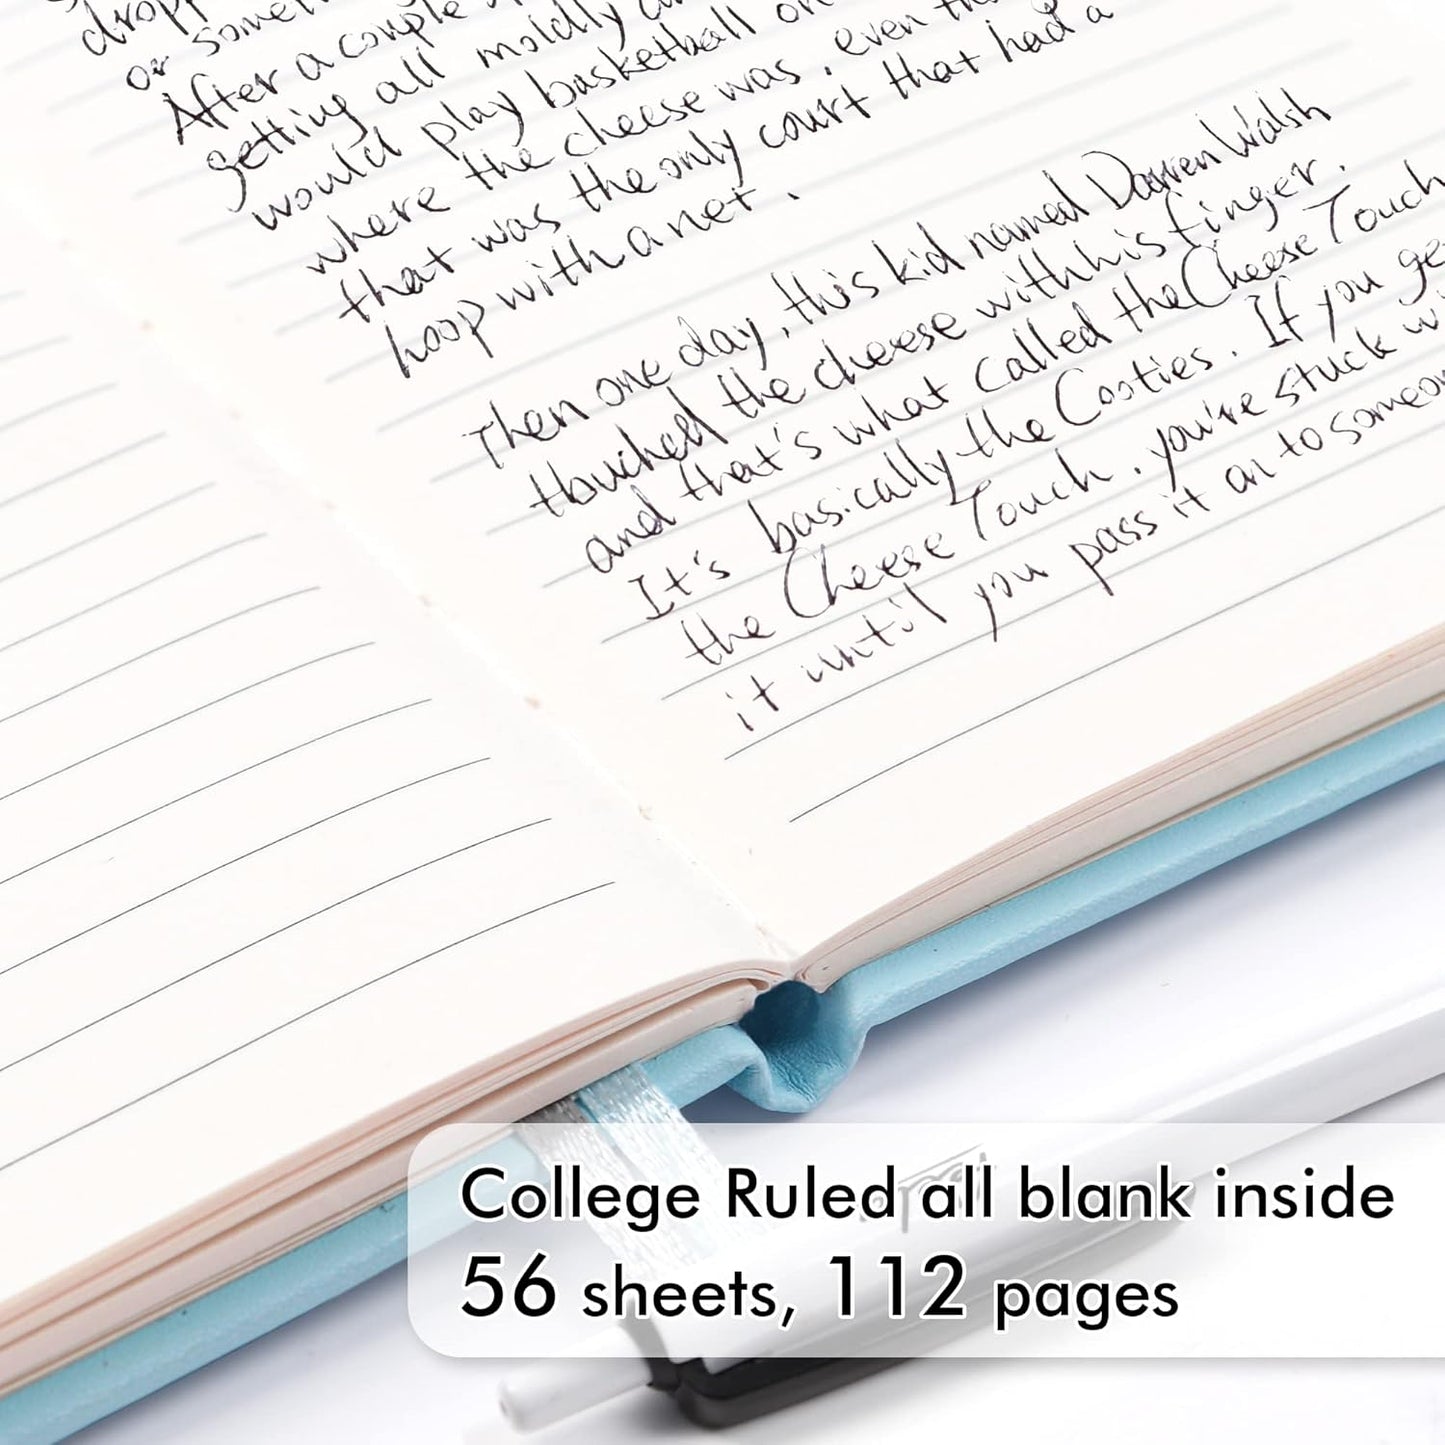 dropp
or someth
After a couple
getting all moldly an
would play basketball on
where the cheese was, even tho
that was the only court that had a
hoop with a net.
Then one day, this kid named Darren Walsh
thuched the cheese with his finger.
and that's what called the Cheese Touch
It's basically the Cooties. If you get
the Cheese Touch, you're stuck wi
it until you pass it on to someon
College Ruled all blank inside
56 sheets, 112 pages